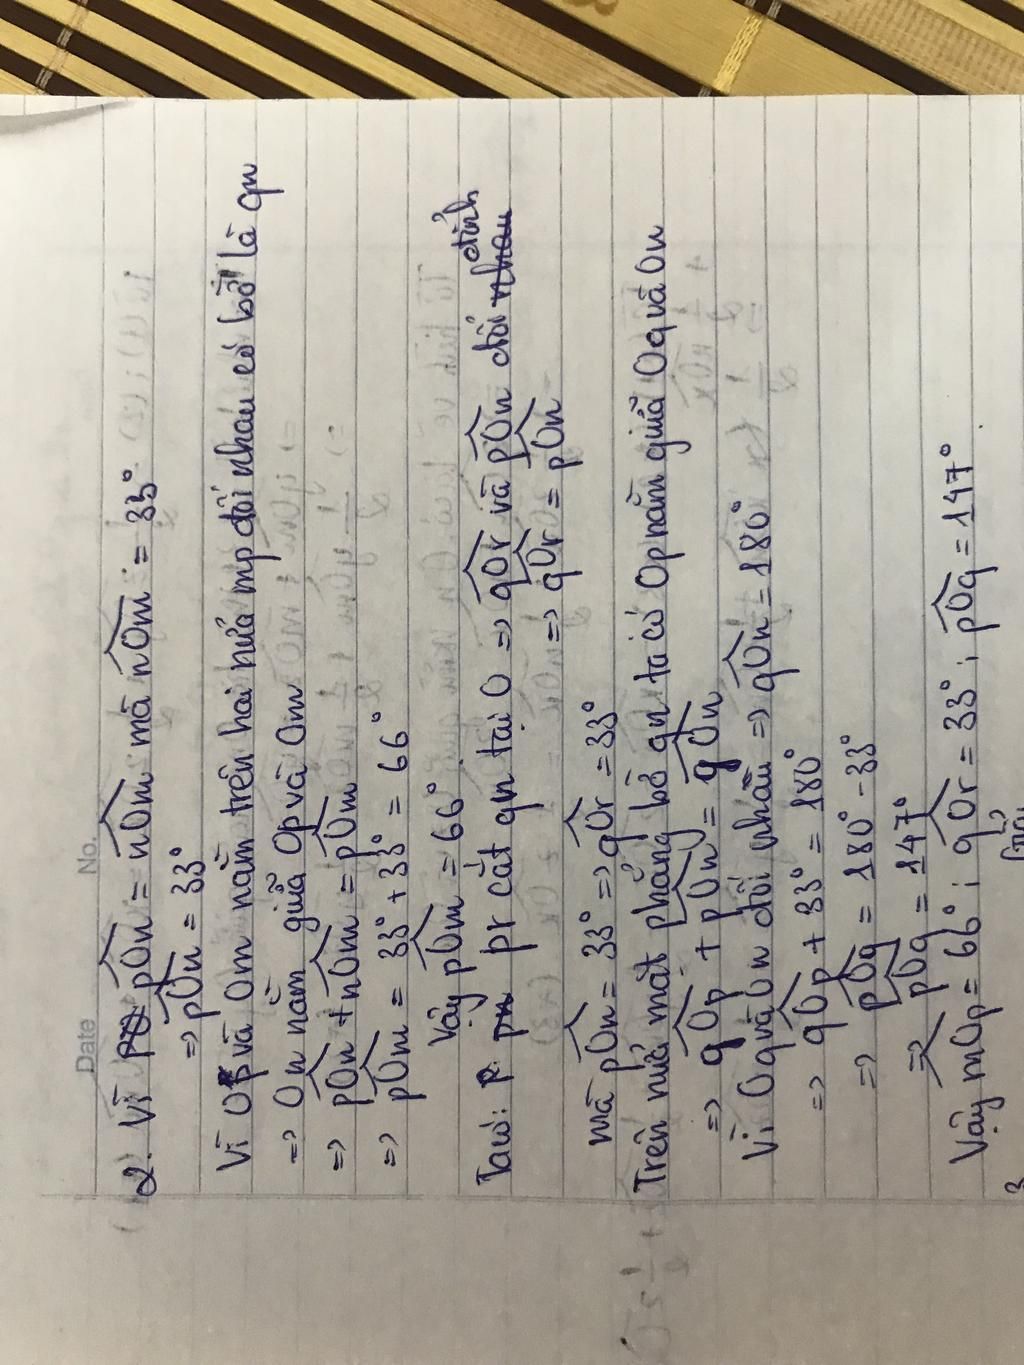 Date No.
2. Vì p̂On = n̂Om mà n̂Om = 33°
=> p̂On = 33°
Vì Op và Om nằm trên hai nửa mp đối nhau có bờ là qn
=> On nằm giữa Op và Om
=> p̂On + n̂Om = p̂Om
=> p̂Om = 33° + 33° = 66°
Vậy p̂Om = 66°
Ta có: pr cắt qn tại O => q̂Or và p̂On đối đỉnh
=> q̂Or = p̂On
mà p̂On = 33° => q̂Or = 33°
Trên nửa mặt phẳng bờ qn ta có Op nằm giữa Oq và On
=> q̂Op + p̂On = q̂On
Vì Oq và On đối nhau => q̂On = 180°
=> q̂Op + 33° = 180°
=> p̂Oq = 180° - 33°
=> p̂Oq = 147°
Vậy m̂Op = 66° ; q̂Or = 33° ; p̂Oq = 147°
3